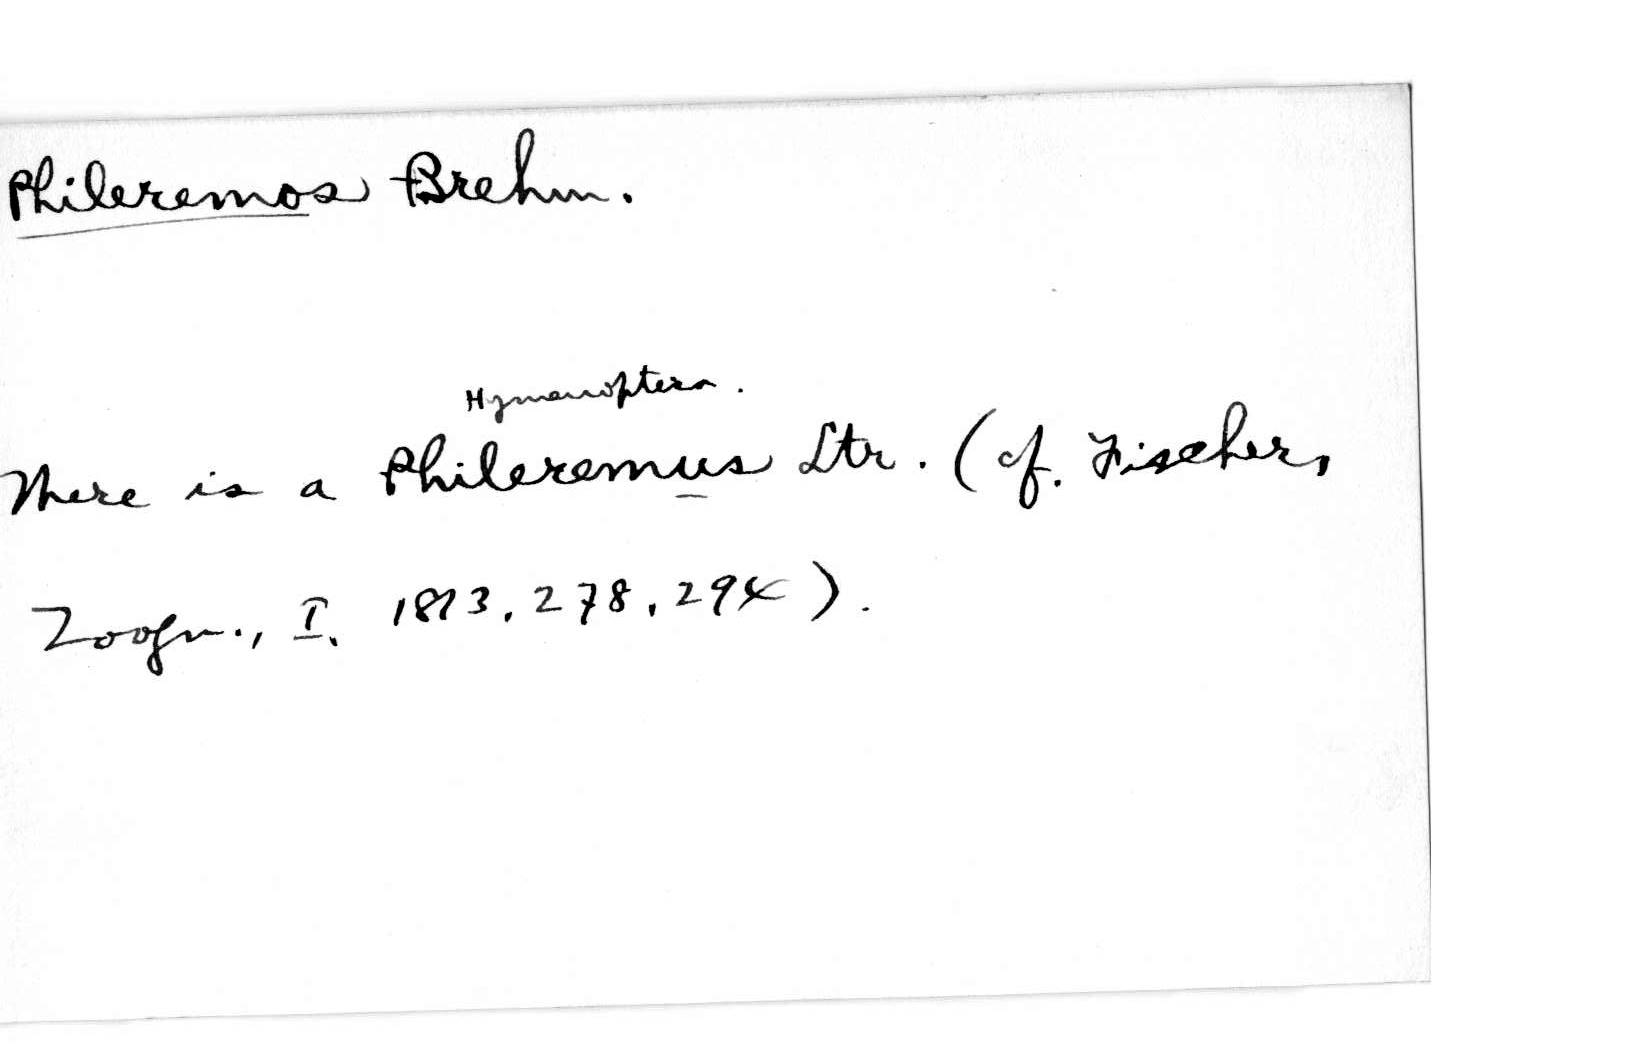 Phileremos Brehm.
Hymenoptera.
There is a Phileremus Ltr. (cf. Fischer,
Zoogn., I. 1813, 278, 294).